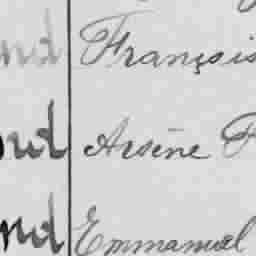 nd François
nd Arsène
nd Emmanuel